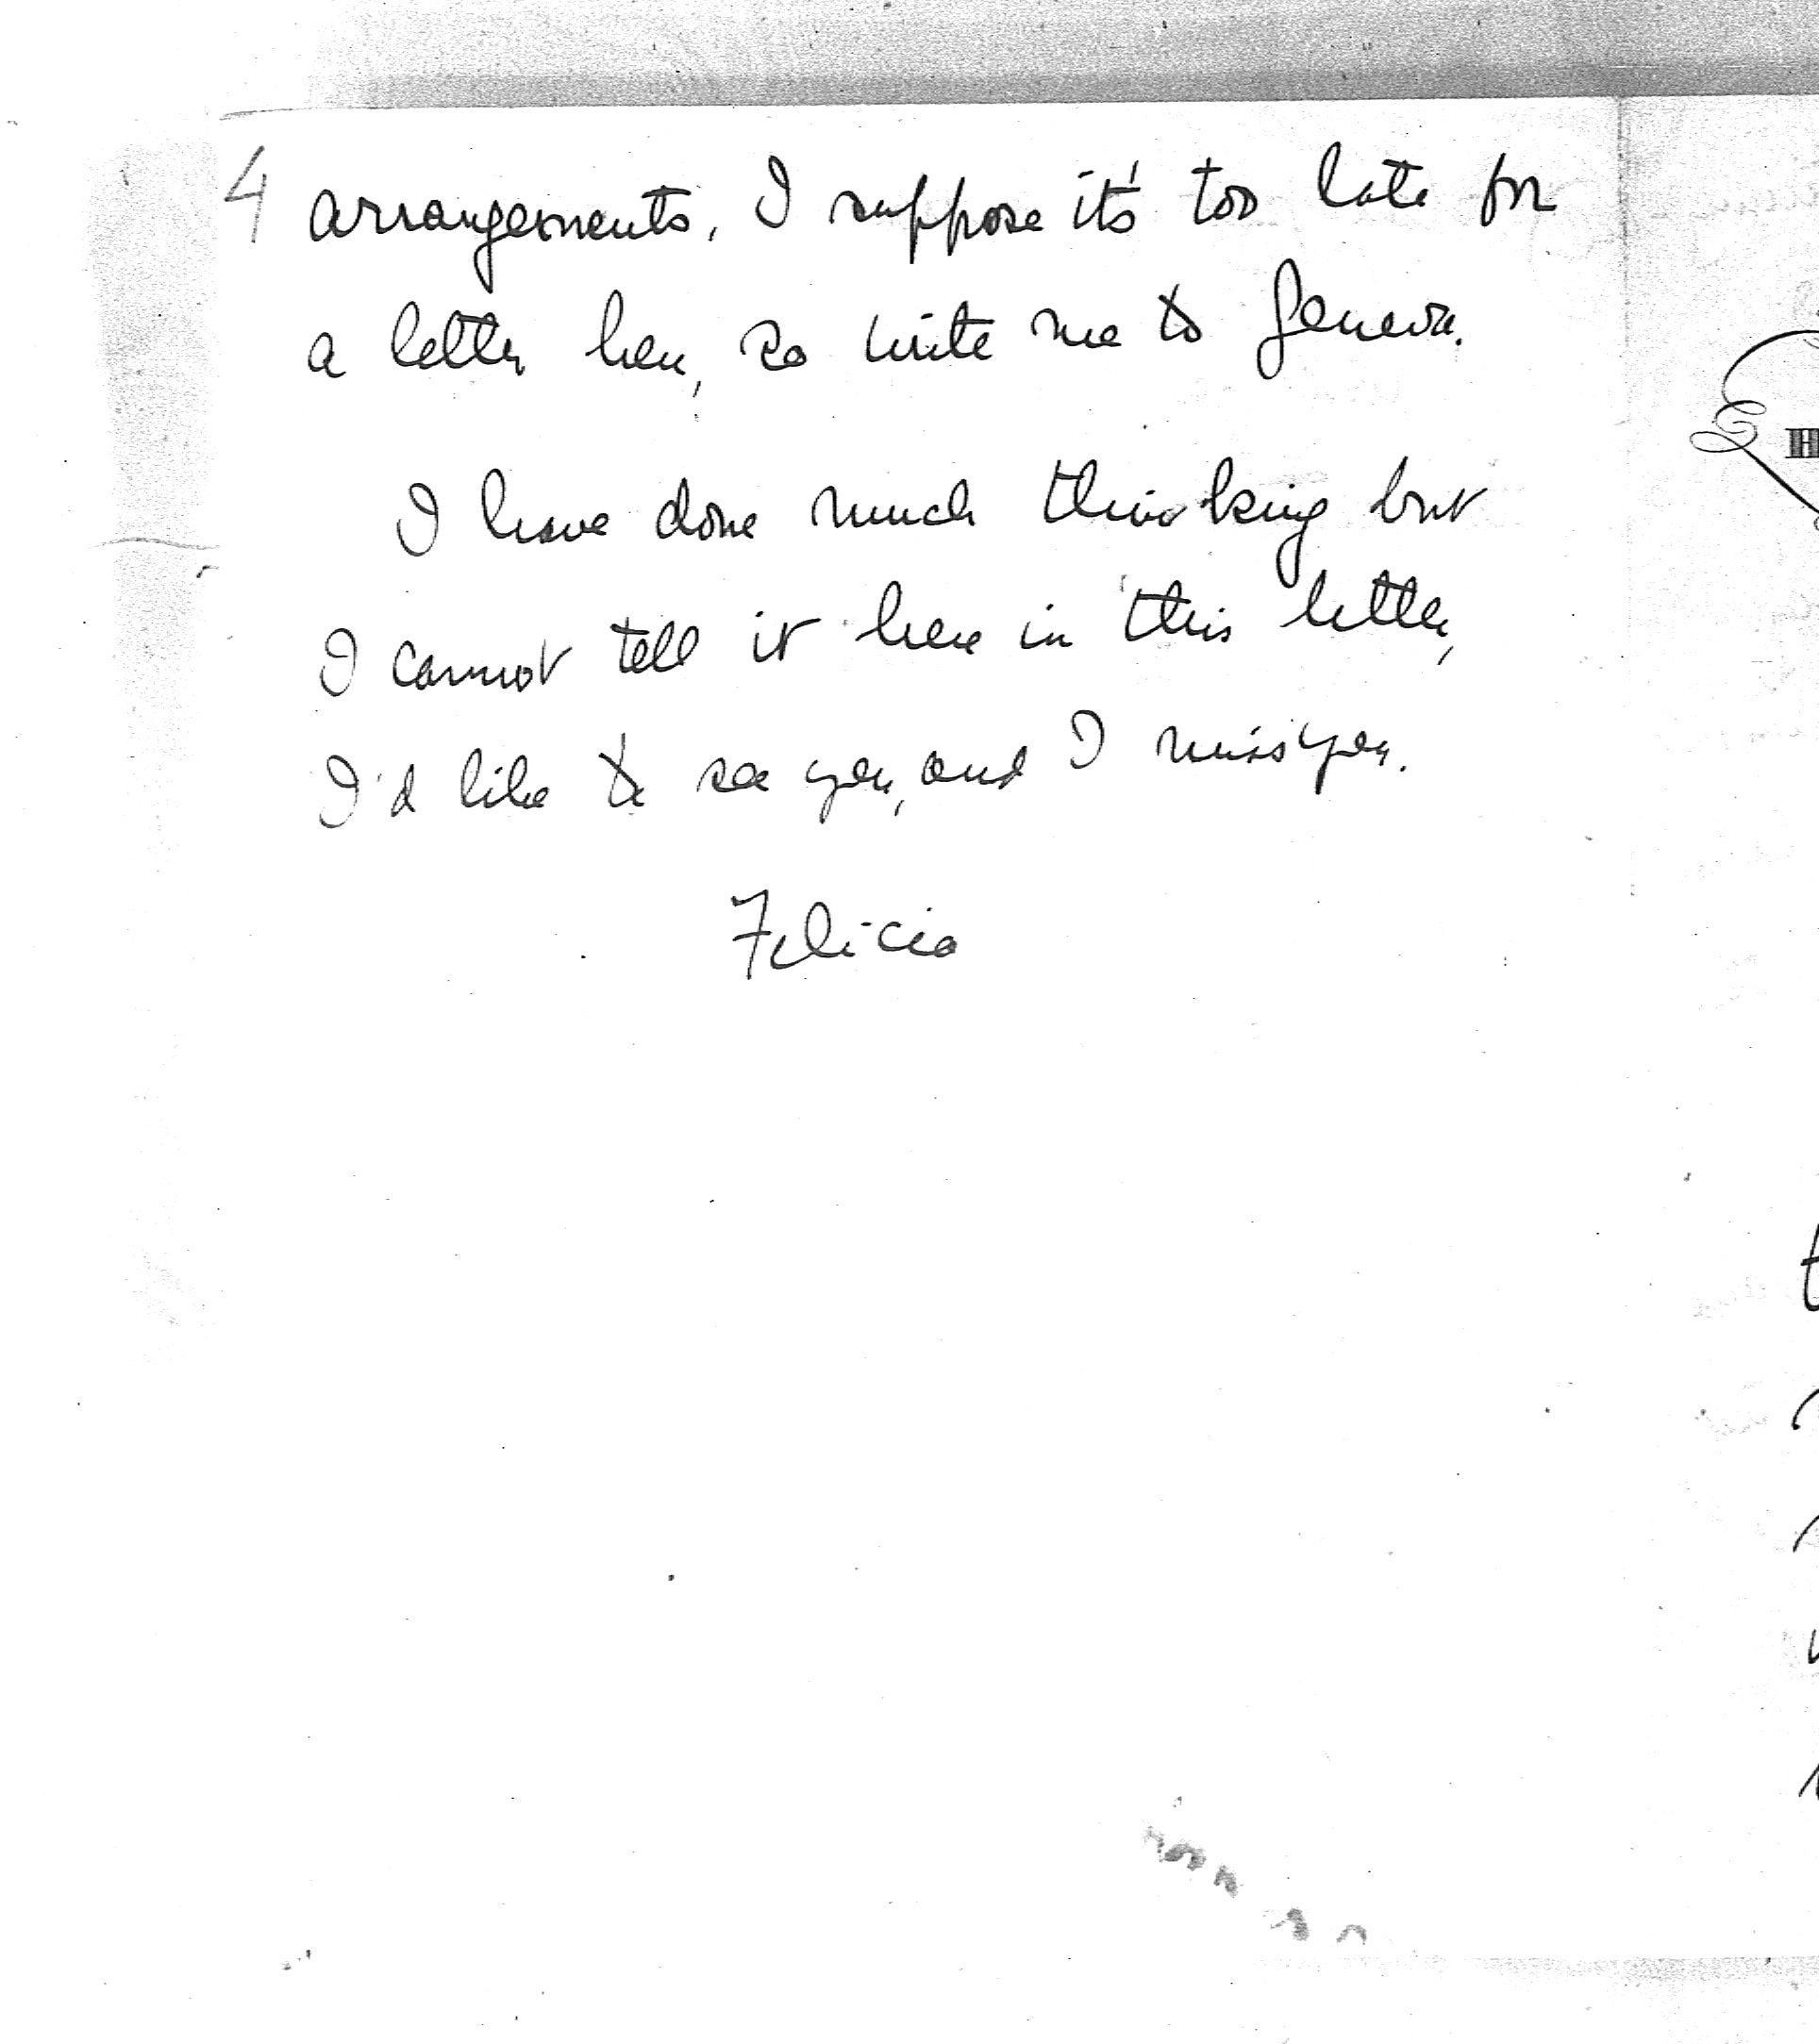 4 arrangements, I suppose it's too late for
a letter here, so write me to Geneva.
I have done much thinking but
I cannot tell it here in this letter,
I'd like to see you, and I miss you.
Felicia
H